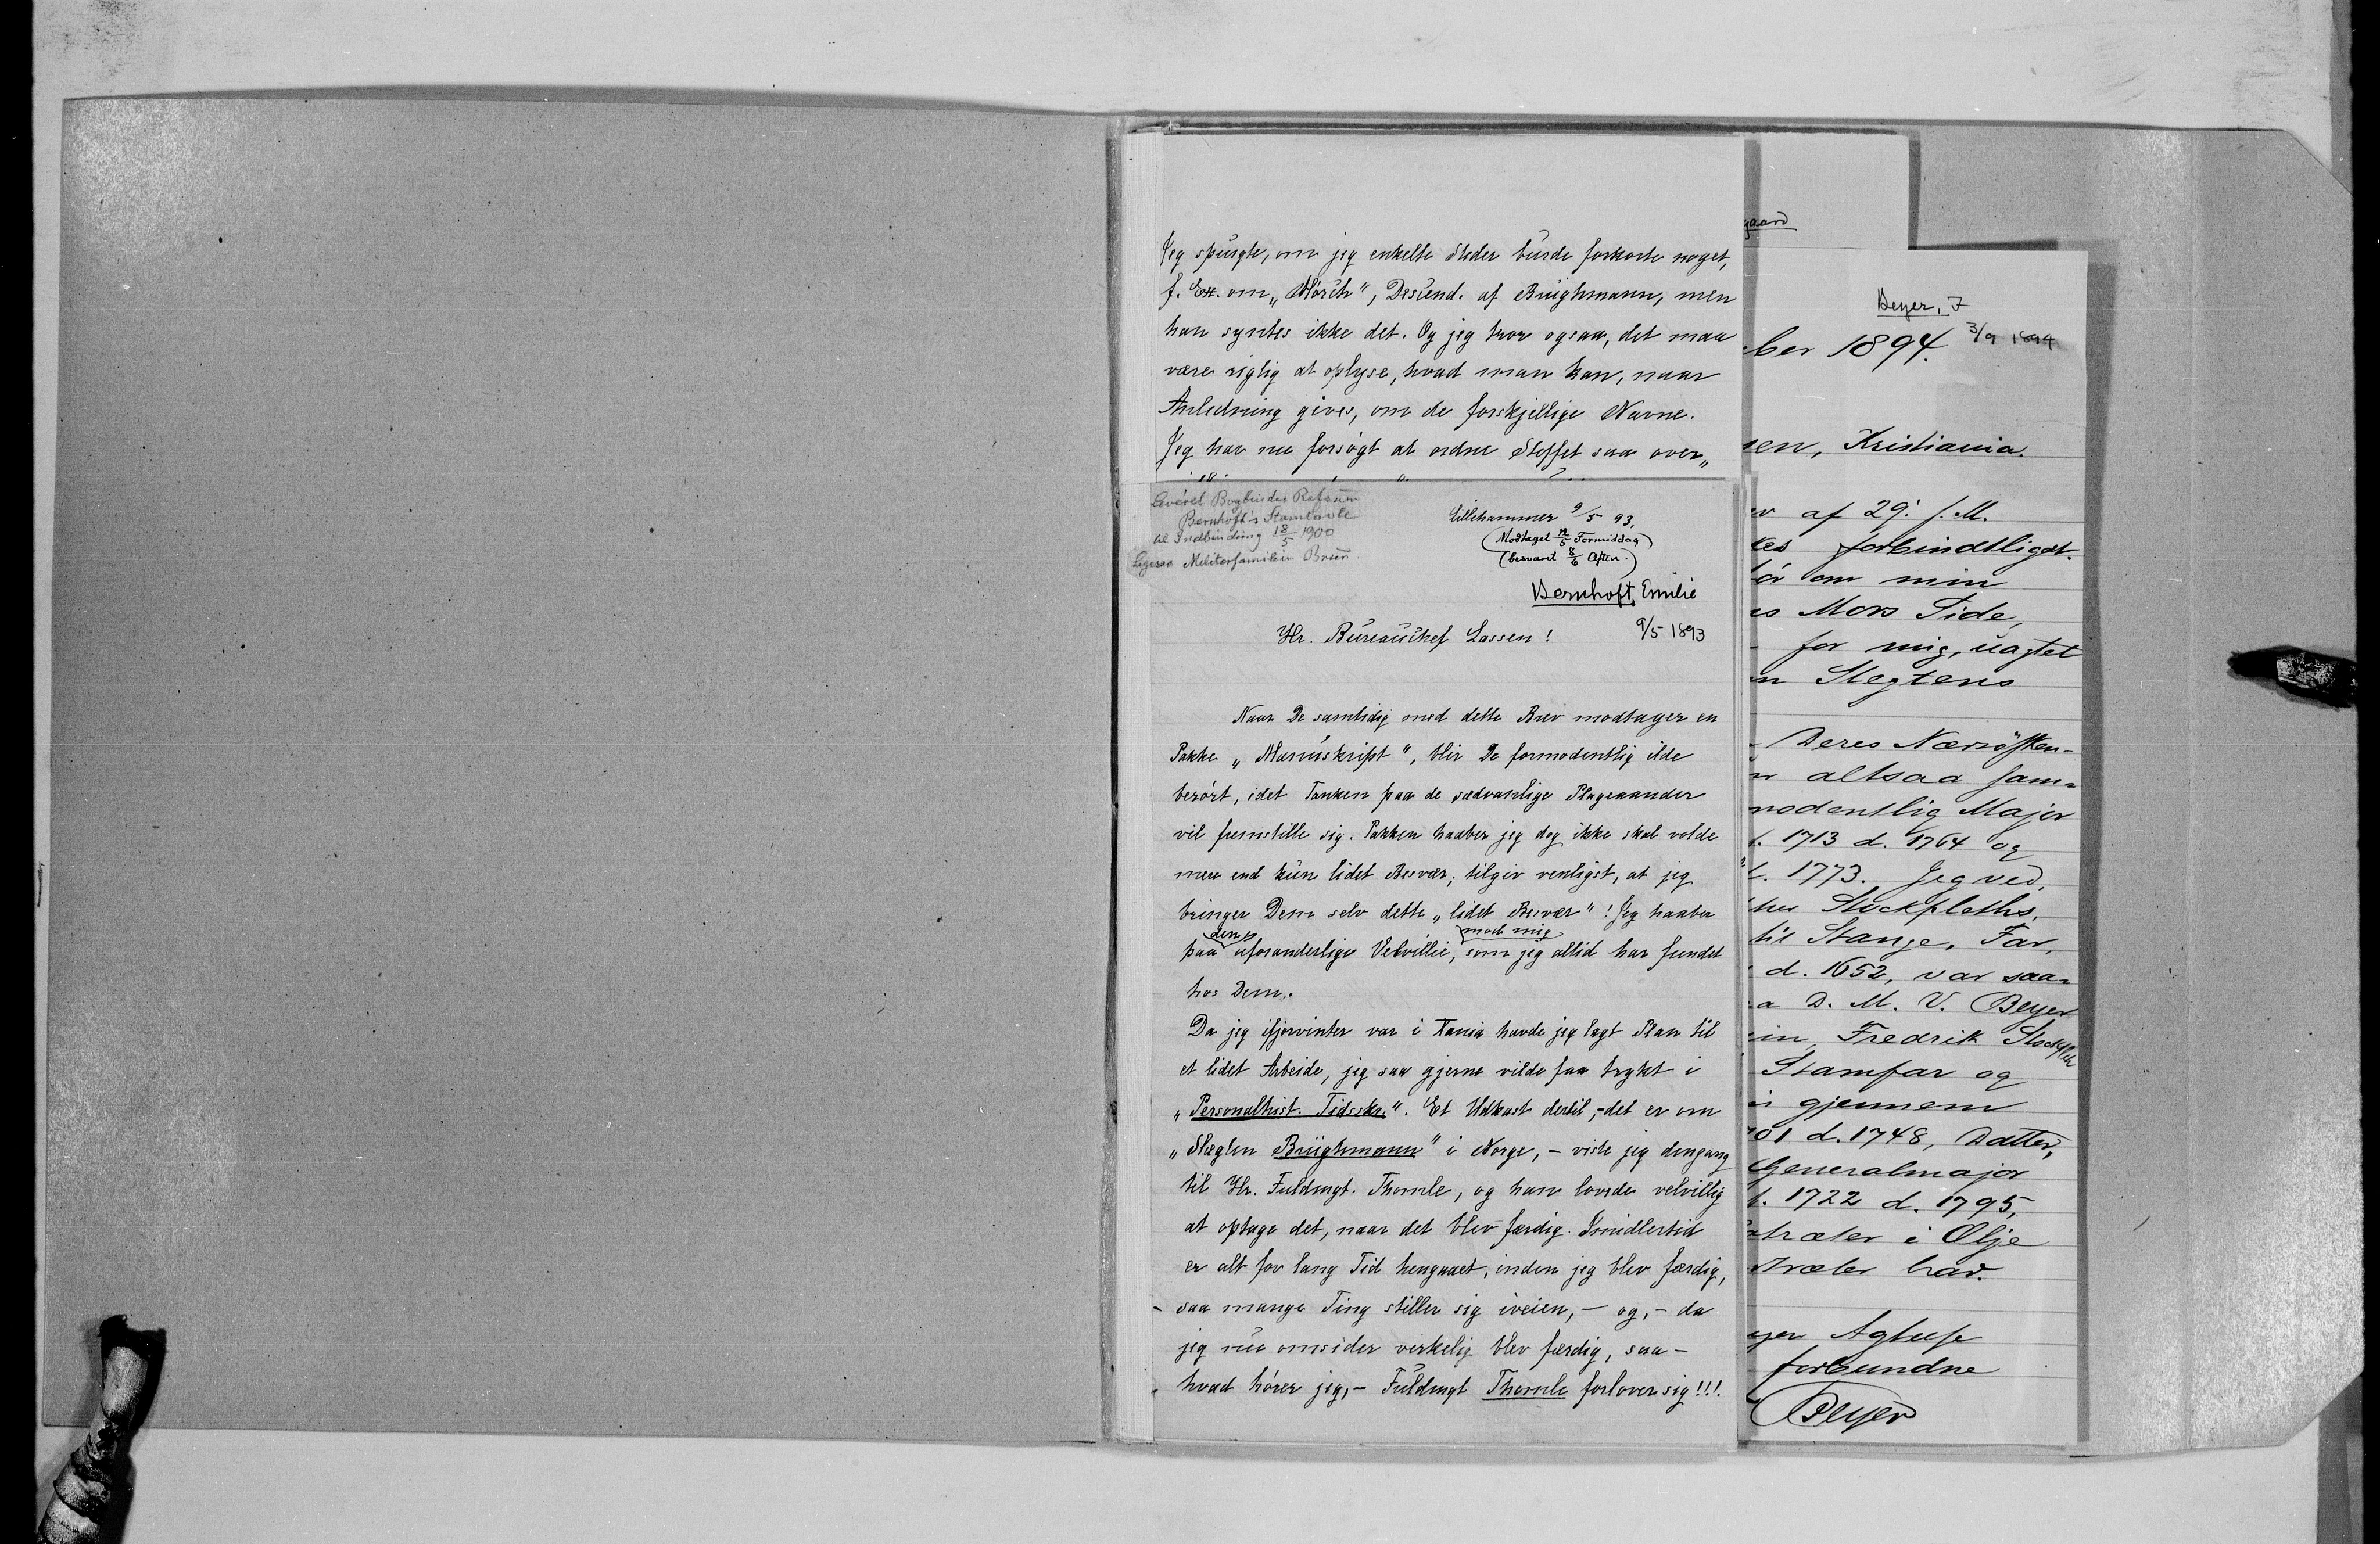 Jeg spurgte, om jeg enkelte Steder burde forkorte noget,
f. Ex. om „Mørch", Descend. af Brüghmann, men
han syntes ikke det. Og jeg tror ogsaa, det maa
være rigtig at oplyse, hvad man kan, naar
Anledning gives, om de forskjellige Navne.
Jeg har nu forsøgt at ordne Stoffet saa over„
Leveret Bogbinder Refsum
Bernhoft's Stamtavle
til Indbinding 18/5 1900
Ligesaa Militærfamilien Bruun
Lillehammer 9/5 93.
(Modtaget 12/5 Formiddag)
(besvaret 8/6 Aften.)
Bernhoft, Emilie
9/5 1893
Hr. Bureauchef Lassen!
Naar De samtidig med dette Brev modtager en
Pakke „Manuskript", blir De formodentlig ilde
berørt, idet Tanken paa de sædvanlige Plageaander
vil fremstille sig. Pakken haaber jeg dog ikke skal volde
mere end kun lidet Besvær; tilgiv venligst, at jeg
bringer Dem selv dette „lidet Besvær"! Jeg haaber
paa den uforanderlige Velvillie, som jeg altid har fundet mod mig
hos Dem.
Da jeg ifjorvinter var i Xania havde jeg lagt Plan til
et lidet Arbeide, jeg saa gjerne vilde faa trykt i
„Personalhist. Tidsskr.". Et Udkast dertil, – det er om
„Slægten Brüghmann" i Norge, – viste jeg dengang
til Hr. Fuldmgt. Thomle, og han lovede velvillig
at optage det, naar det blev færdig. Imidlertid
er alt for lang Tid hengaaet, inden jeg blev færdig,
saa mange Ting stiller sig iveien, – og, – da
jeg nu omsider virkelig blev færdig, saa –
hvad hører jeg, – Fuldmgt Thomle forlover sig!!!
gaard
Beyer, F
3/9 1894
ber 1894.
sen, Kristiania.
ev af 29. f. M.
kes forbindtligst.
før om min
es Mors Side,
for mig, uagtet
n Slegtens
Deres Nærsøsken-
n altsaa sam-
modentlig Major
f. 1713 d. 1764 og
f. 1773. Jeg ved,
hes Stockfleths,
til Stange, Far,
d. 1652, var saa-
a D. M. V. Beyer
in, Fredrik Stockfleth
Stamfar og
n gjennem
701 d. 1748, Datter,
Generalmajor
f. 1722 d. 1795,
træter i Olje
træter har.
ger Agtelse
forbundne
Beyer